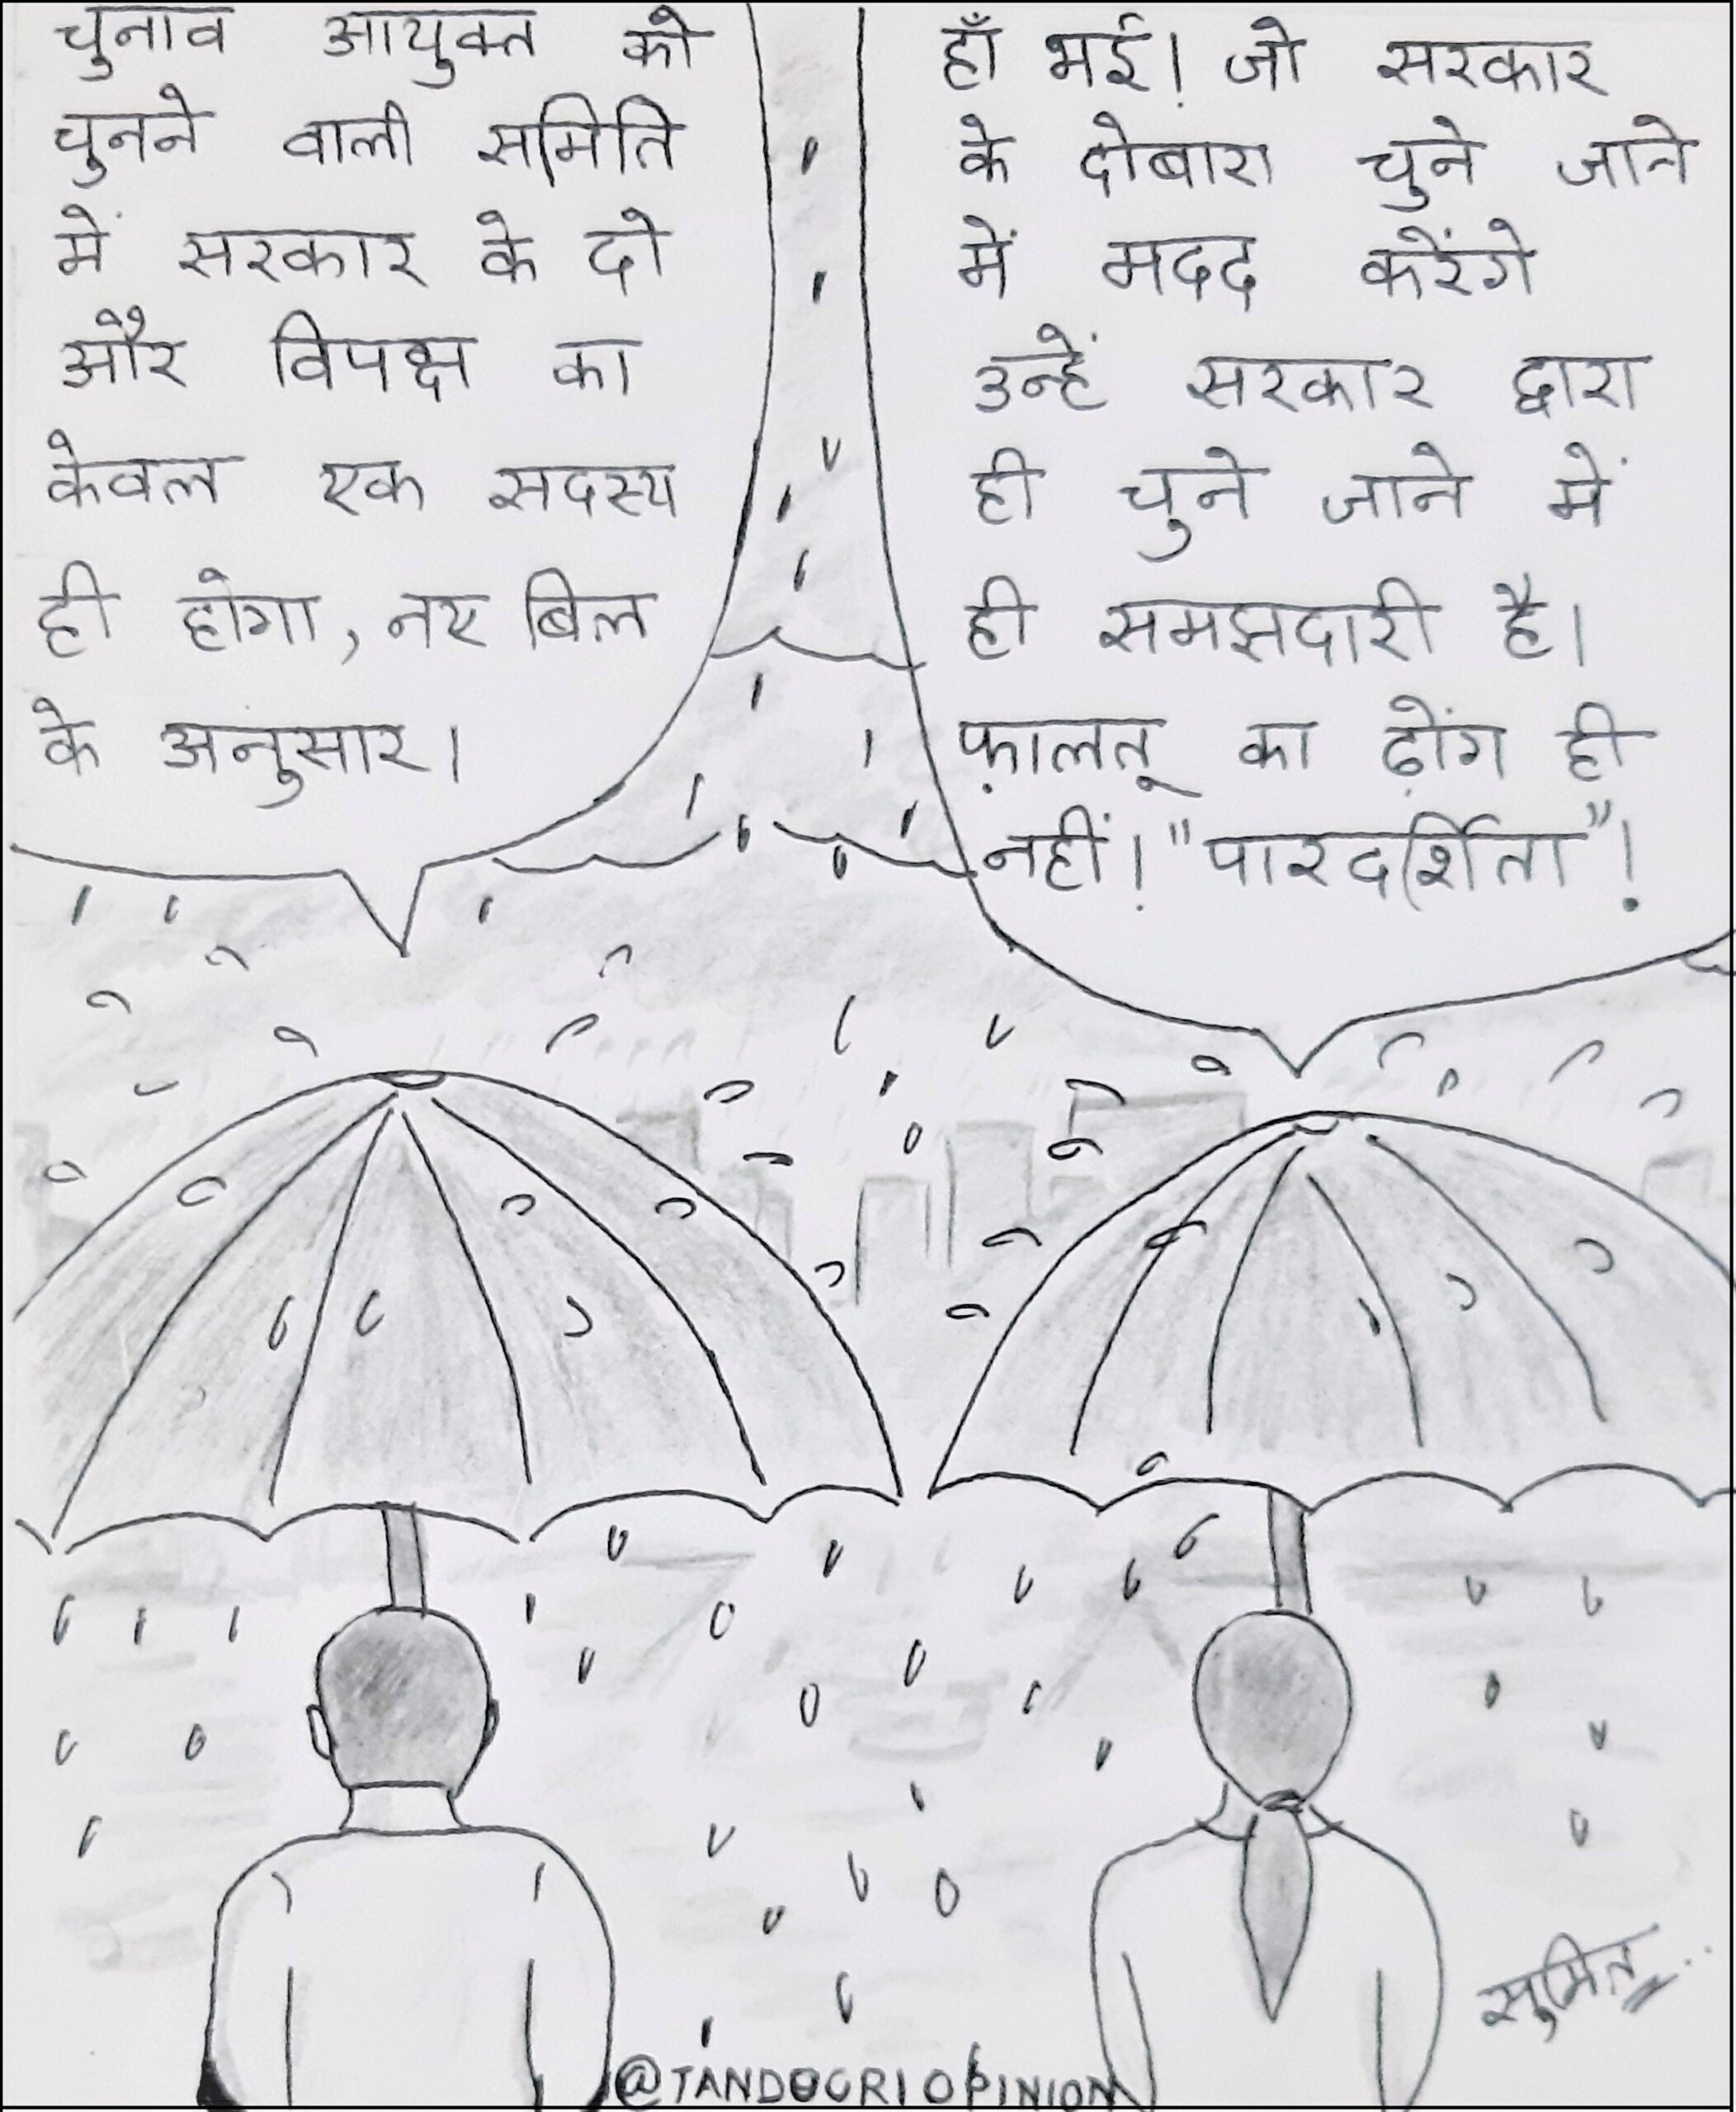 चुनाव आयुक्त को
चुनने वाली समिति
में सरकार के दो
और विपक्ष का
केवल एक सदस्य
ही होगा, नए बिल
के अनुसार।
हाँ भई! जो सरकार
के दोबारा चुने जाने
में मदद करेंगे
उन्हें सरकार द्वारा
ही चुने जाने में
ही समझदारी है।
फ़ालतू का ढ़ोंग ही
नहीं! "पारदर्शिता"!
सुमित
@TANDOORIOPINION